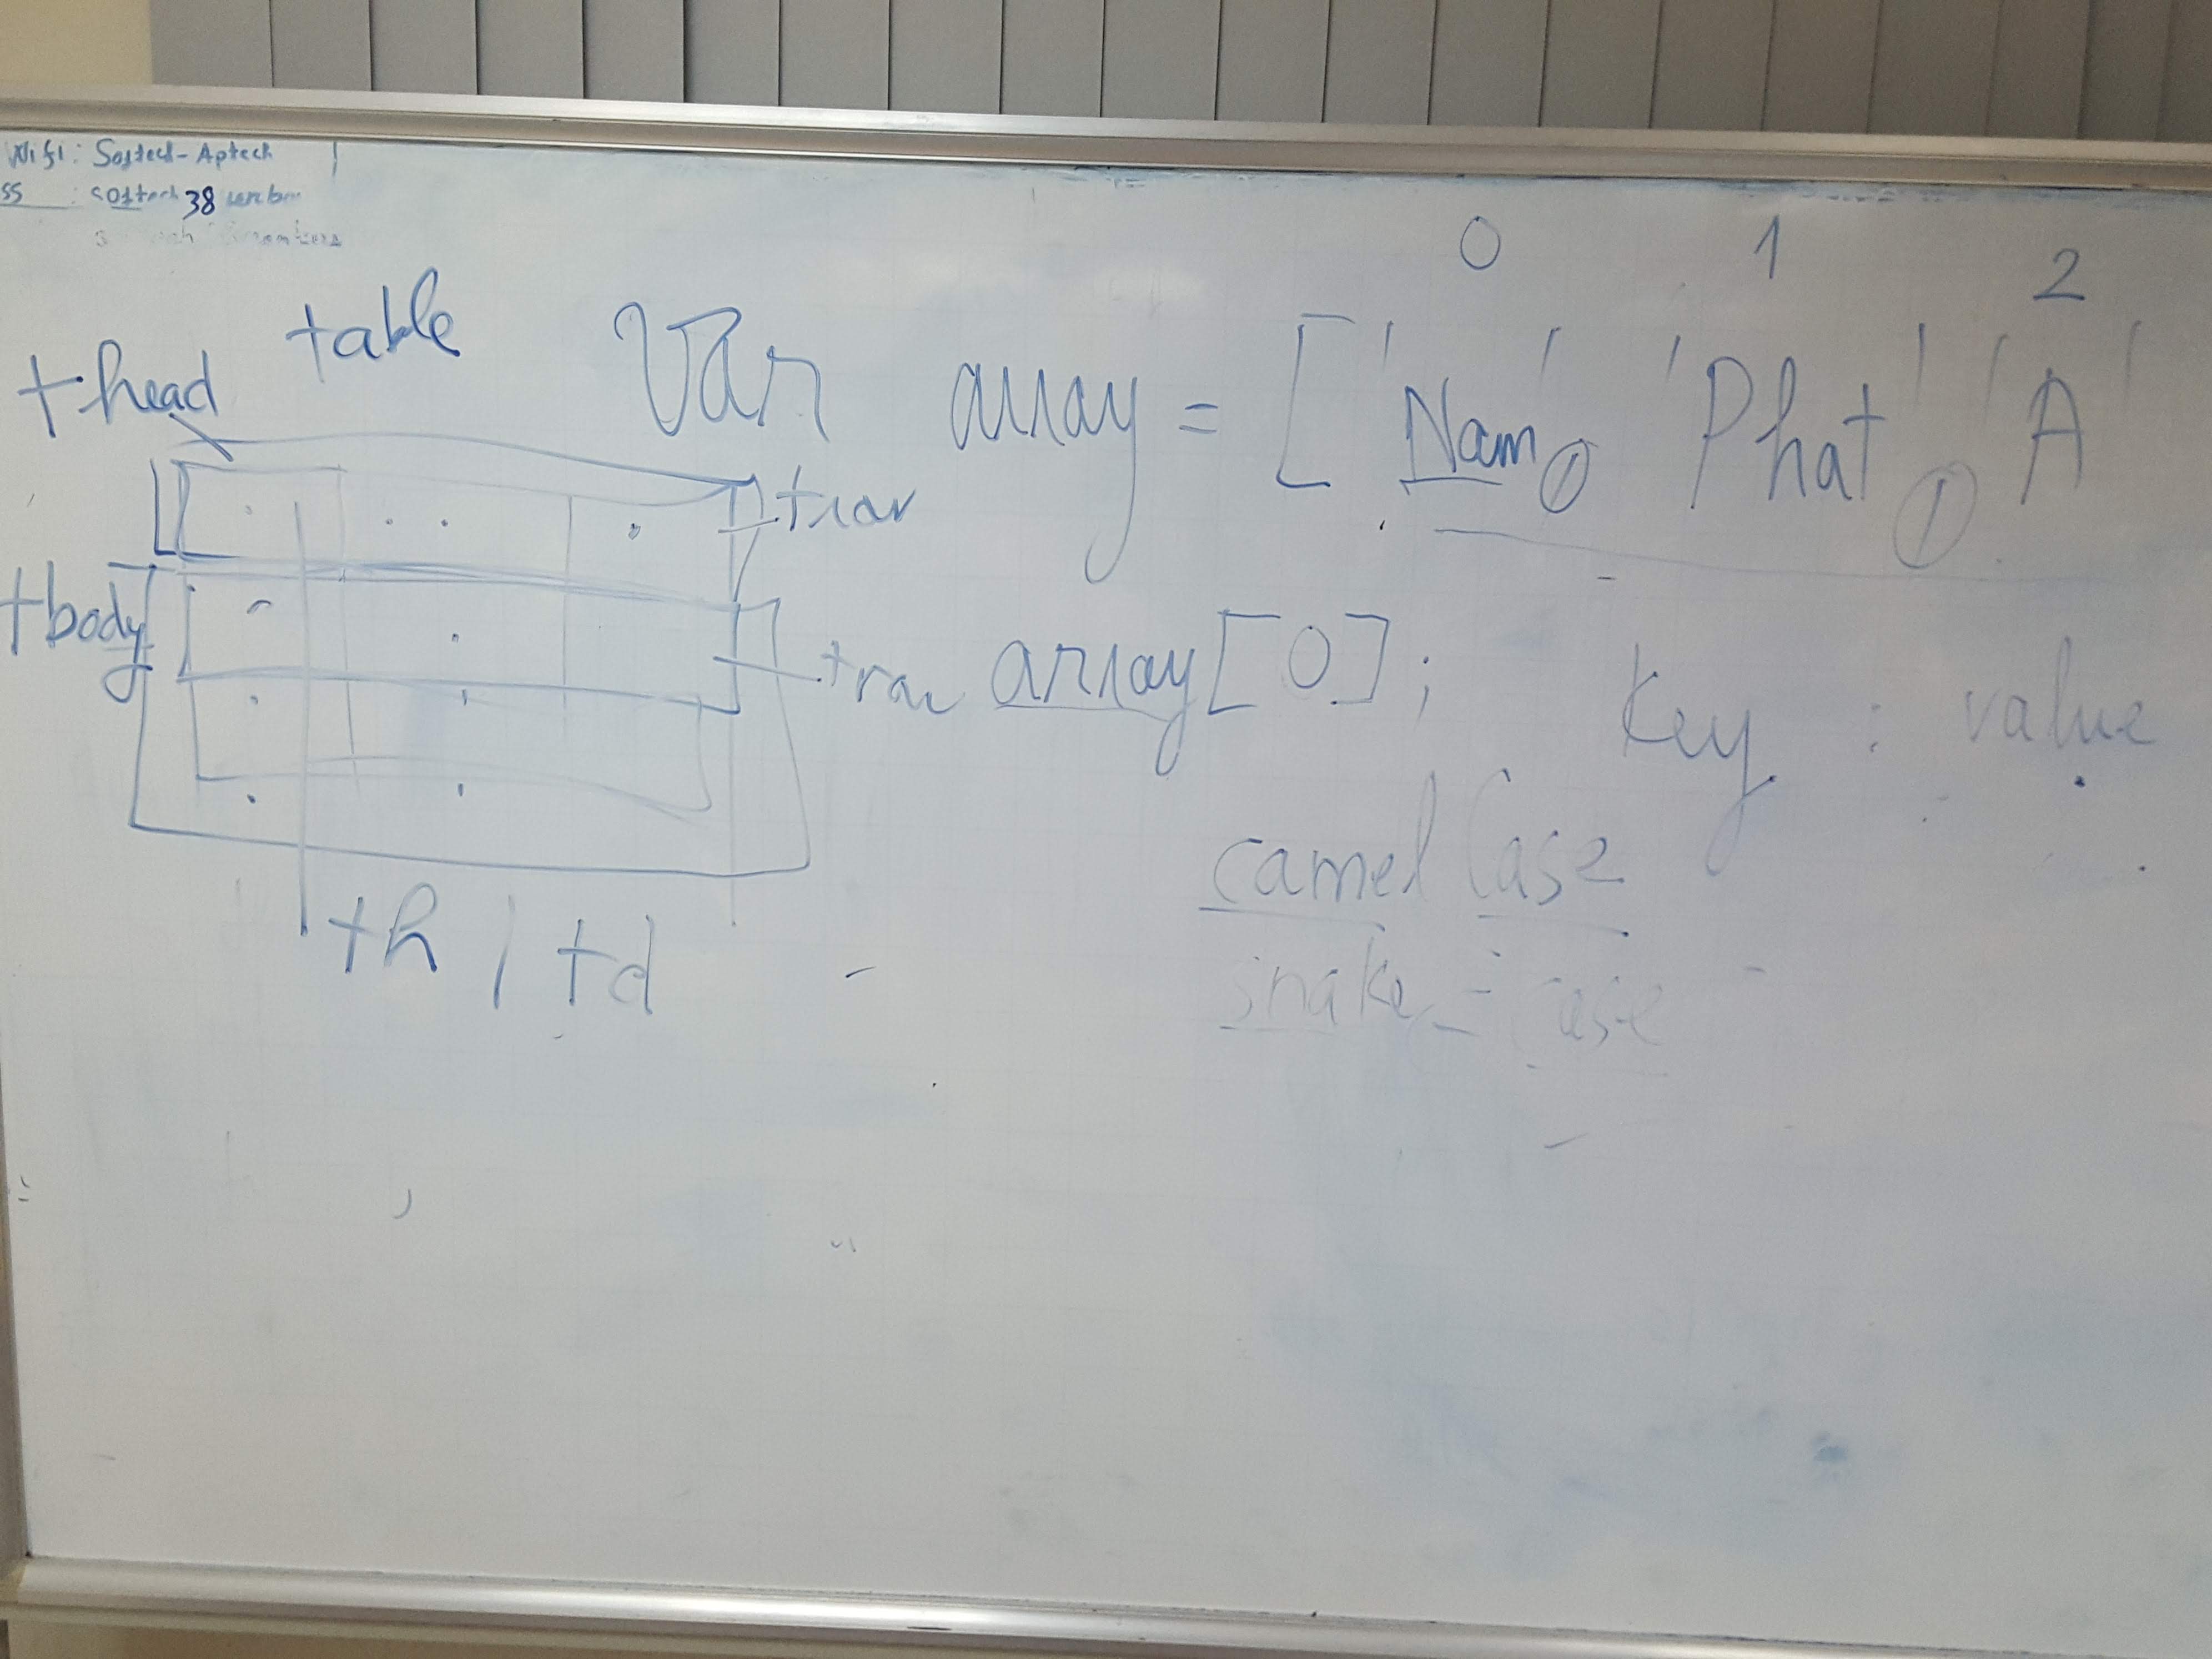 Wifi: Softech-Aptech
ss : softech 38
table
thead
trow
tbody
trow
th / td
0 1 2
Var array = ['Nam', 'Phat', 'A'
array[0];
key : value
camelCase
snake_case